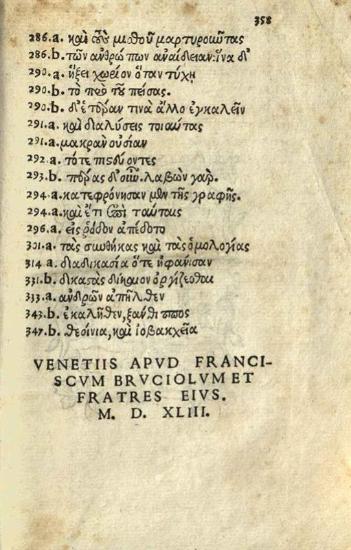 358
286.a. καὶ τοὺς μισθοῦ μαρτυροιωτας
286.b. τῶν ἀνθρώπων ἀναίδειαν: ἵνα δι'
290.a. ἥξει χωρίον ὅταν τύχῃ
290.b. τὸ που τοῦ πείσας.
290.b. δι' ἑτέραν τινὰ ἄλλο ἐγκαλεῖν
291.a. καὶ διαλύσεις τοιαύτας
291.a. μακρὰν οὐσίαν
292.a τότε πιςδύοντες
293.b. πόρας δ' οὖν. λαβὼν γαρ.
294.a. κατεφρόνησαν μὲν τῆς γραφῆς.
294.a. καὶ ἔτι ἐπὶ ταύταις
296.a. εἰς ῥόδον ἀπέδοτο
301.a. τὰς σιωθήκας καὶ τὰς ὁμολογίας
314 a. διαδικασία ὅτε ἠφανίσαν
331.b. δικαςὰς δίκαιον ὀργίζεσθαι
333.a. ἀνδρῶν ἀπῆλθεν
343.b. ἐκαλῆθεν, ξανθίππος
347.b. θεοίνια, καὶ ἰοβακχεῖα
VENETIIS APVD FRANCI-
SCVM BRVCIOLVM ET
FRATRES EIVS.
M. D. XLIII.